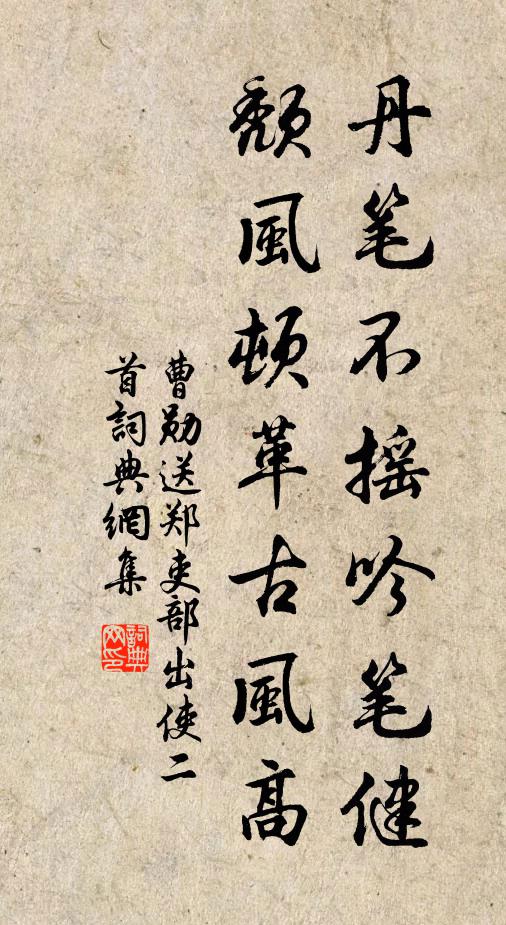 丹笔不摇吟笔健
颓風顿革古風高
曹勋送郑吏部出使二
首詞典網集
詞典
网印